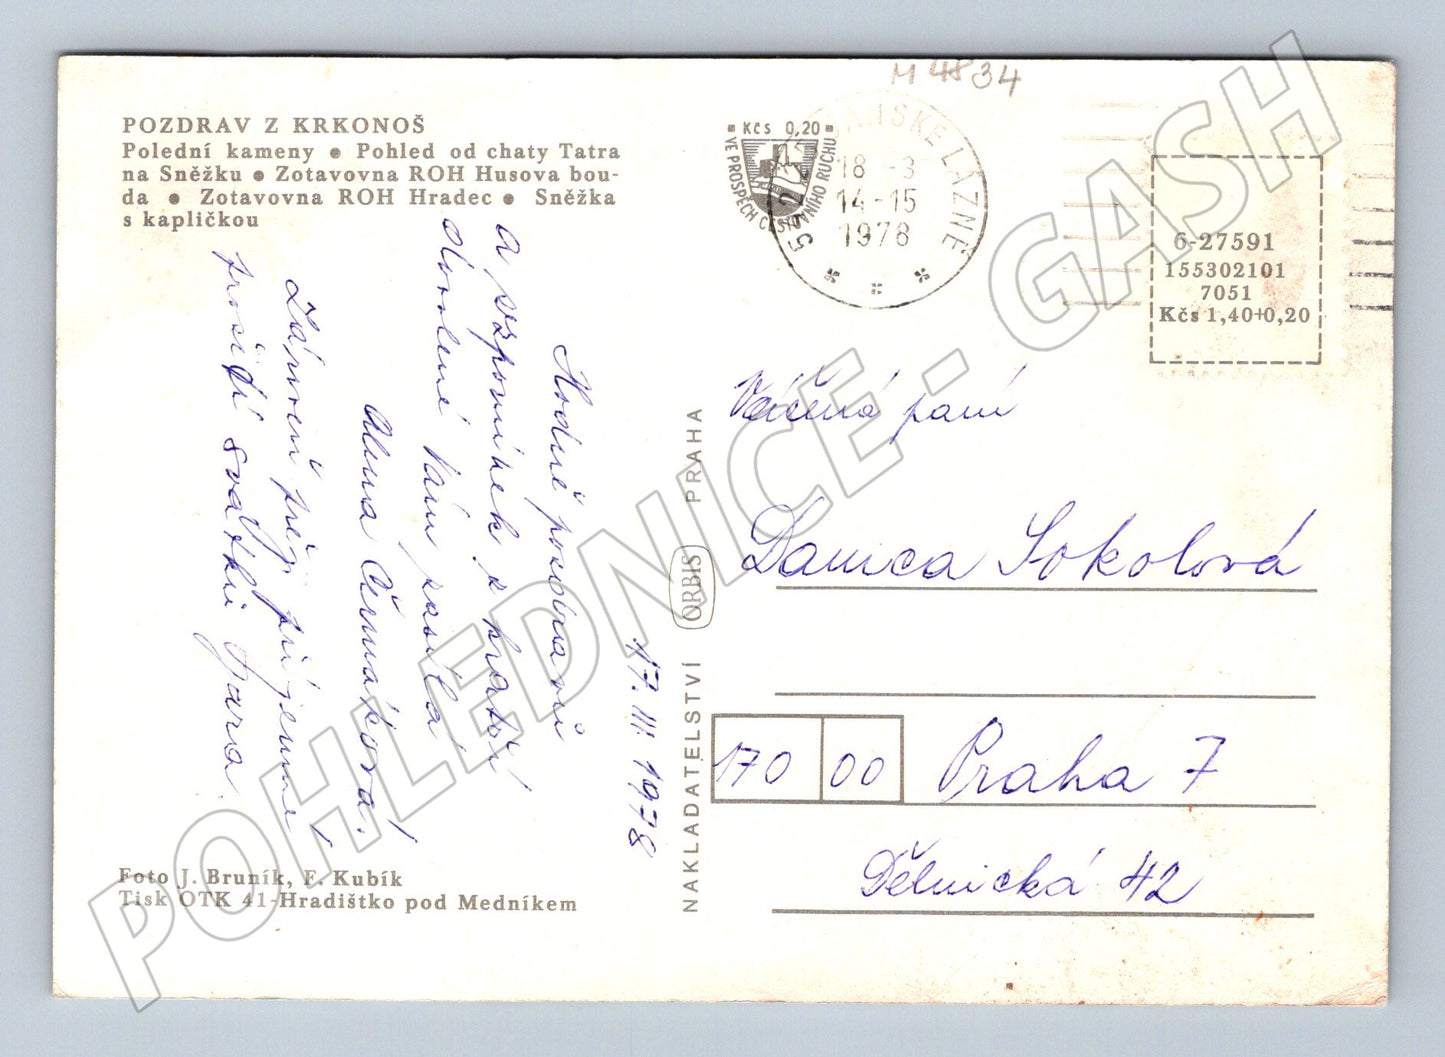 M 4834
POZDRAV Z KRKONOŠ
Polední kameny ● Pohled od chaty Tatra
na Sněžku ● Zotavovna ROH Husova bou-
da ● Zotavovna ROH Hradec ● Sněžka
s kapličkou
Kčs 0,20
VE PROSPĚCH CESTOVNÍHO RUCHU
LÁZNĚ
18 -3
14-15
1978
6-27591
155302101
7051
Kčs 1,40+0,20
17. III. 1978
Hodně pozdravů
a vzpomínek z hor
dovolené Vám zasílá
Alena Čermáková!
Zároveň přeji příjemné
prožití svátků jara!
Foto J. Bruník, F. Kubík
Tisk OTK 41-Hradištko pod Medníkem
NAKLADATELSTVÍ ORBIS PRAHA
Vážená paní
Danica Sokolová
170 00 Praha 7
Dělnická 42
POHLEDNICE - GASH